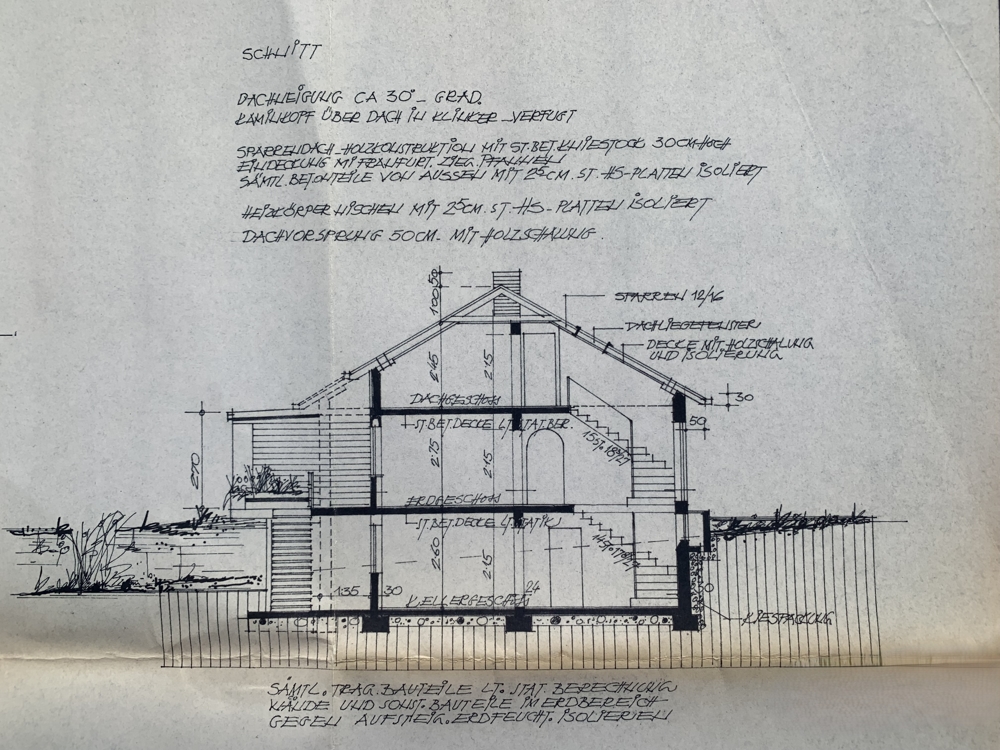 SCHNITT
DACHNEIGUNG CA 30°- GRAD.
KAMINKOPF ÜBER DACH IN KLINKER - VERFUGT
SPARRENDACH - HOLZKONSTRUKTION MIT ST.BET.KNIESTOCK 30CM-HOCH
EINDECKUNG MI FRANKFURT. ZIEG. PFANNEN
SÄMTL. BETONTEILE VON AUSSEN MIT 25CM. ST.-HS-PLATTEN ISOLIERT
HEIZKÖRPERNISCHEN MIT 25CM. ST.-HS-PLATTEN ISOLIERT
DACHVORSPRUNG 50CM. MIT HOLZSCHALUNG.
50
100
SPARREN 12/16
DACHLIEGEFENSTER
DECKE MIT HOLZSCHALUNG
UND ISOLIERUNG
2.45
2.15
30
DACHGESCHOSS
ST.BET.DECKE LT. STAT.BER.
50
270
2.75
2.15
ERDGESCHOSS
ST.BET.DECKE LT. STATIK
2.60
2.15
1.35
30
24
KELLERGESCHOSS
KIESPACKUNG
SÄMTL. TRAG. BAUTEILE LT. STAT. BERECHNUNG
WÄNDE UND SONST. BAUTEILE IM ERDBEREICH
GEGEN AUFSTEIG. ERDFEUCHT. ISOLIEREN